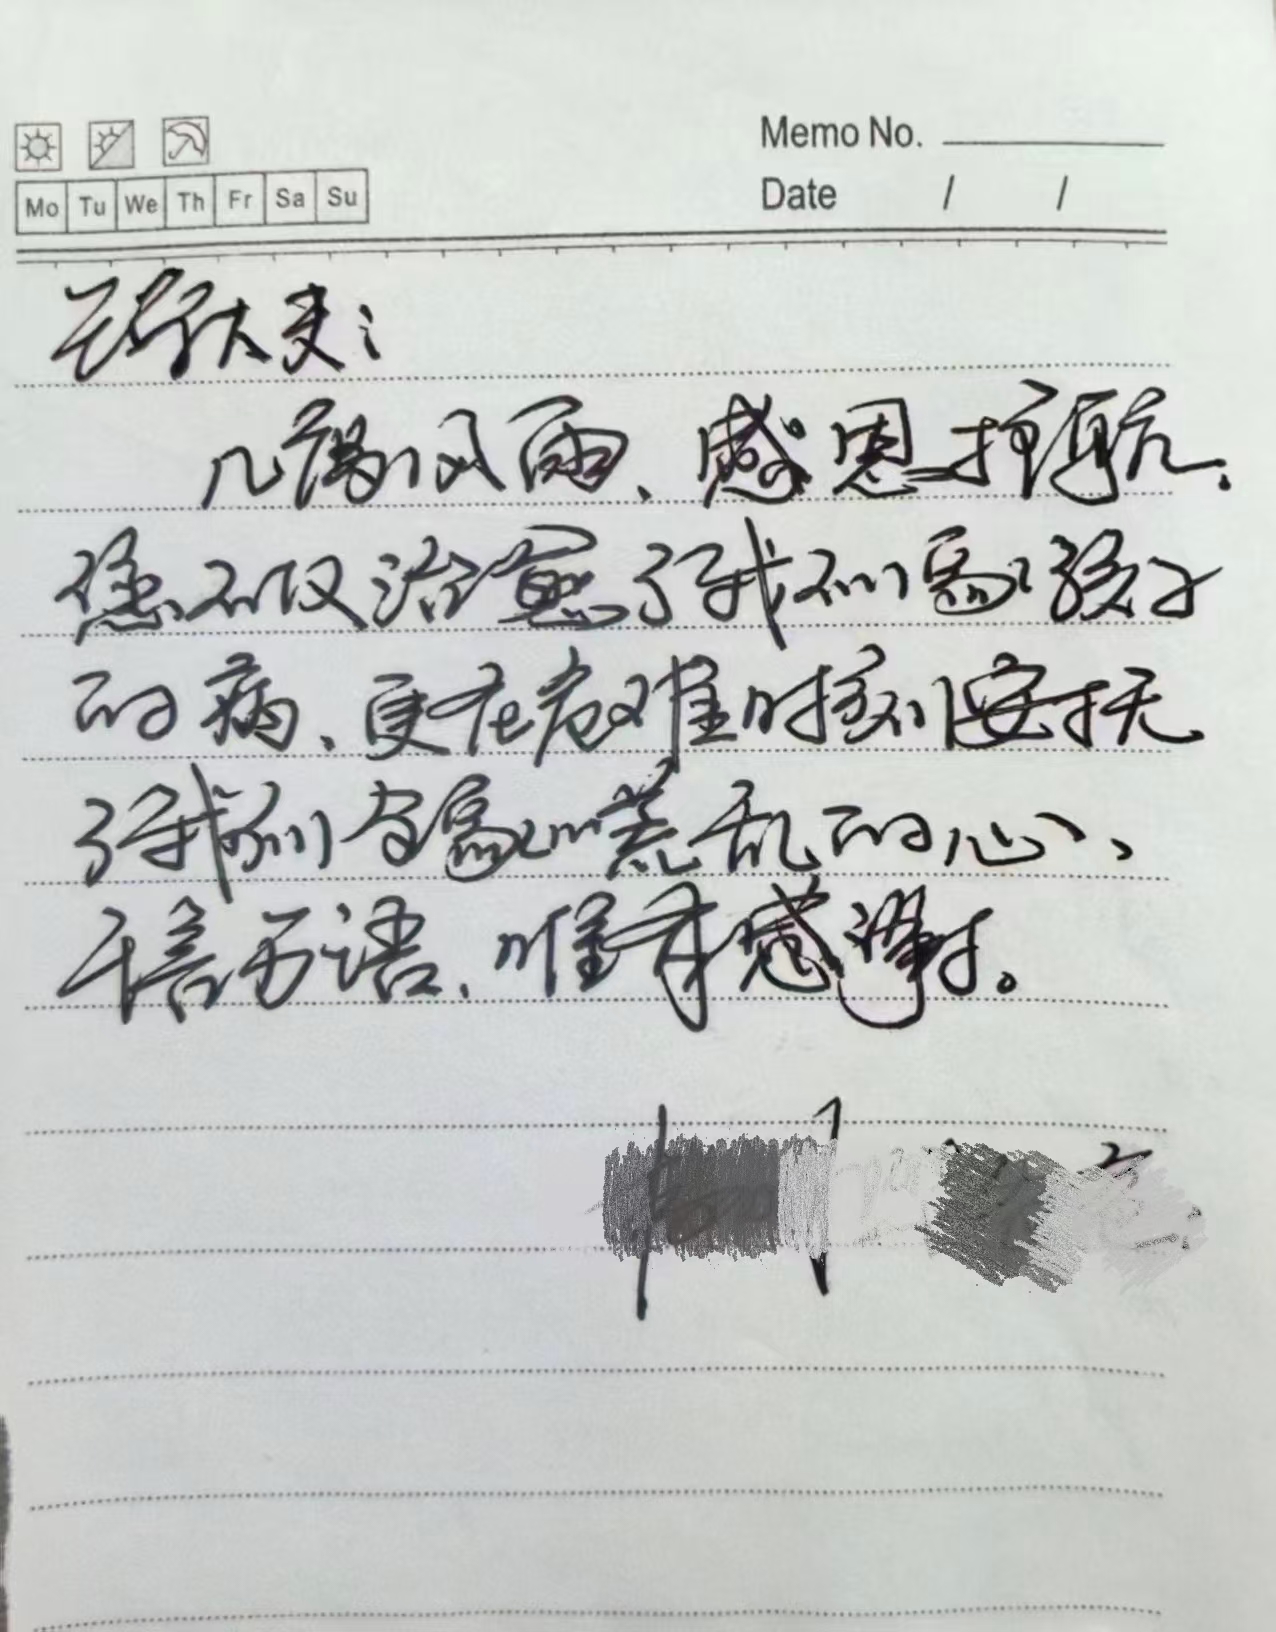 Memo No.
Mo Tu We Th Fr Sa Su
Date / /
大夫:
几场风雨、感恩护航.
您不仅治愈了我们家孩子
的病、更在危难时刻安抚
了我们全家慌乱的心、
千言万语、唯有感谢。